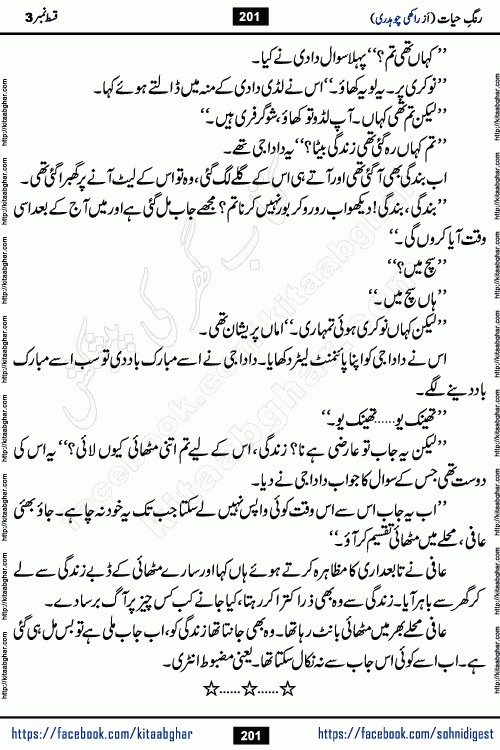 رنگِ حیات (از راکھی چوہدری) 201 قسط نمبر 3
’’کہاں تھی تم؟‘‘ پہلا سوال دادی نے کیا۔
’’نوکری پر۔ یہ لو یہ کھاؤ۔‘‘ اس نے لڈی دادی کے منہ میں ڈالتے ہوئے کہا۔
’’لیکن تم تھی کہاں۔ آپ لڈو تو کھاؤ، شوگر فری ہیں۔‘‘
’’تم کہاں رہ گئی تھی زندگی بیٹا؟‘‘ یہ دادا جی تھے۔
اب بندگی بھی آ گئی تھی اور آتے ہی اس کے گلے لگ گئی، وہ تو اس کے لیٹ آنے پر گھبرا گئی تھی۔
’’بندگی، بندگی! دیکھو اب رو رو کر بور نہیں کرنا تم؟ مجھے جاب مل گئی ہے اور میں آج کے بعد اسی
وقت آیا کروں گی۔‘‘
’’سچ میں؟‘‘
’’ہاں سچ میں۔‘‘
’’لیکن کہاں نوکری ہوئی تمہاری۔‘‘ اماں پریشان تھی۔
اس نے دادا جی کو اپنا پائنمنٹ لیٹر دکھایا۔ دادا جی نے اسے مبارک باد دی تو سب اسے مبارک
باد دینے لگے۔
’’تھینک یو......تھینک یو۔‘‘
’’لیکن یہ جاب تو عارضی ہے نا؟ زندگی، اس کے لیے تم اتنی مٹھائی کیوں لائی؟‘‘ یہ اس کی
دوست تھی جس کے سوال کا جواب دادا جی نے دیا۔
’’اب یہ جاب اس سے اس وقت کوئی واپس نہیں لے سکتا جب تک یہ خود نہ چاہے۔ جاؤ بھئی
عافی، محلے میں مٹھائی تقسیم کر آؤ۔‘‘
عافی نے تابعداری کا مظاہرہ کرتے ہوئے ہاں کہا اور سارے مٹھائی کے ڈبے زندگی سے لے
کر گھر سے باہر آیا۔ زندگی سے وہ بھی ذرا کترا کر رہتا، کیا جانے کب کس چیز پر آگ برسا دے۔
عافی محلے بھر میں مٹھائی بانٹ رہا تھا۔ وہ بھی جانتا تھا زندگی کو، اب جاب ملی ہے تو بس مل ہی گئی
ہے۔ اب اسے کوئی اس جاب سے نہ نکال سکتا تھا۔ یعنی مضبوط انٹری۔
☆......☆......☆
https://facebook.com/kitaabghar 201 https://facebook.com/sohnidigest
http://kitaabghar.com
کتاب گھر کی پیشکش
facebook.com/kitaabghar
kitaabghar.com